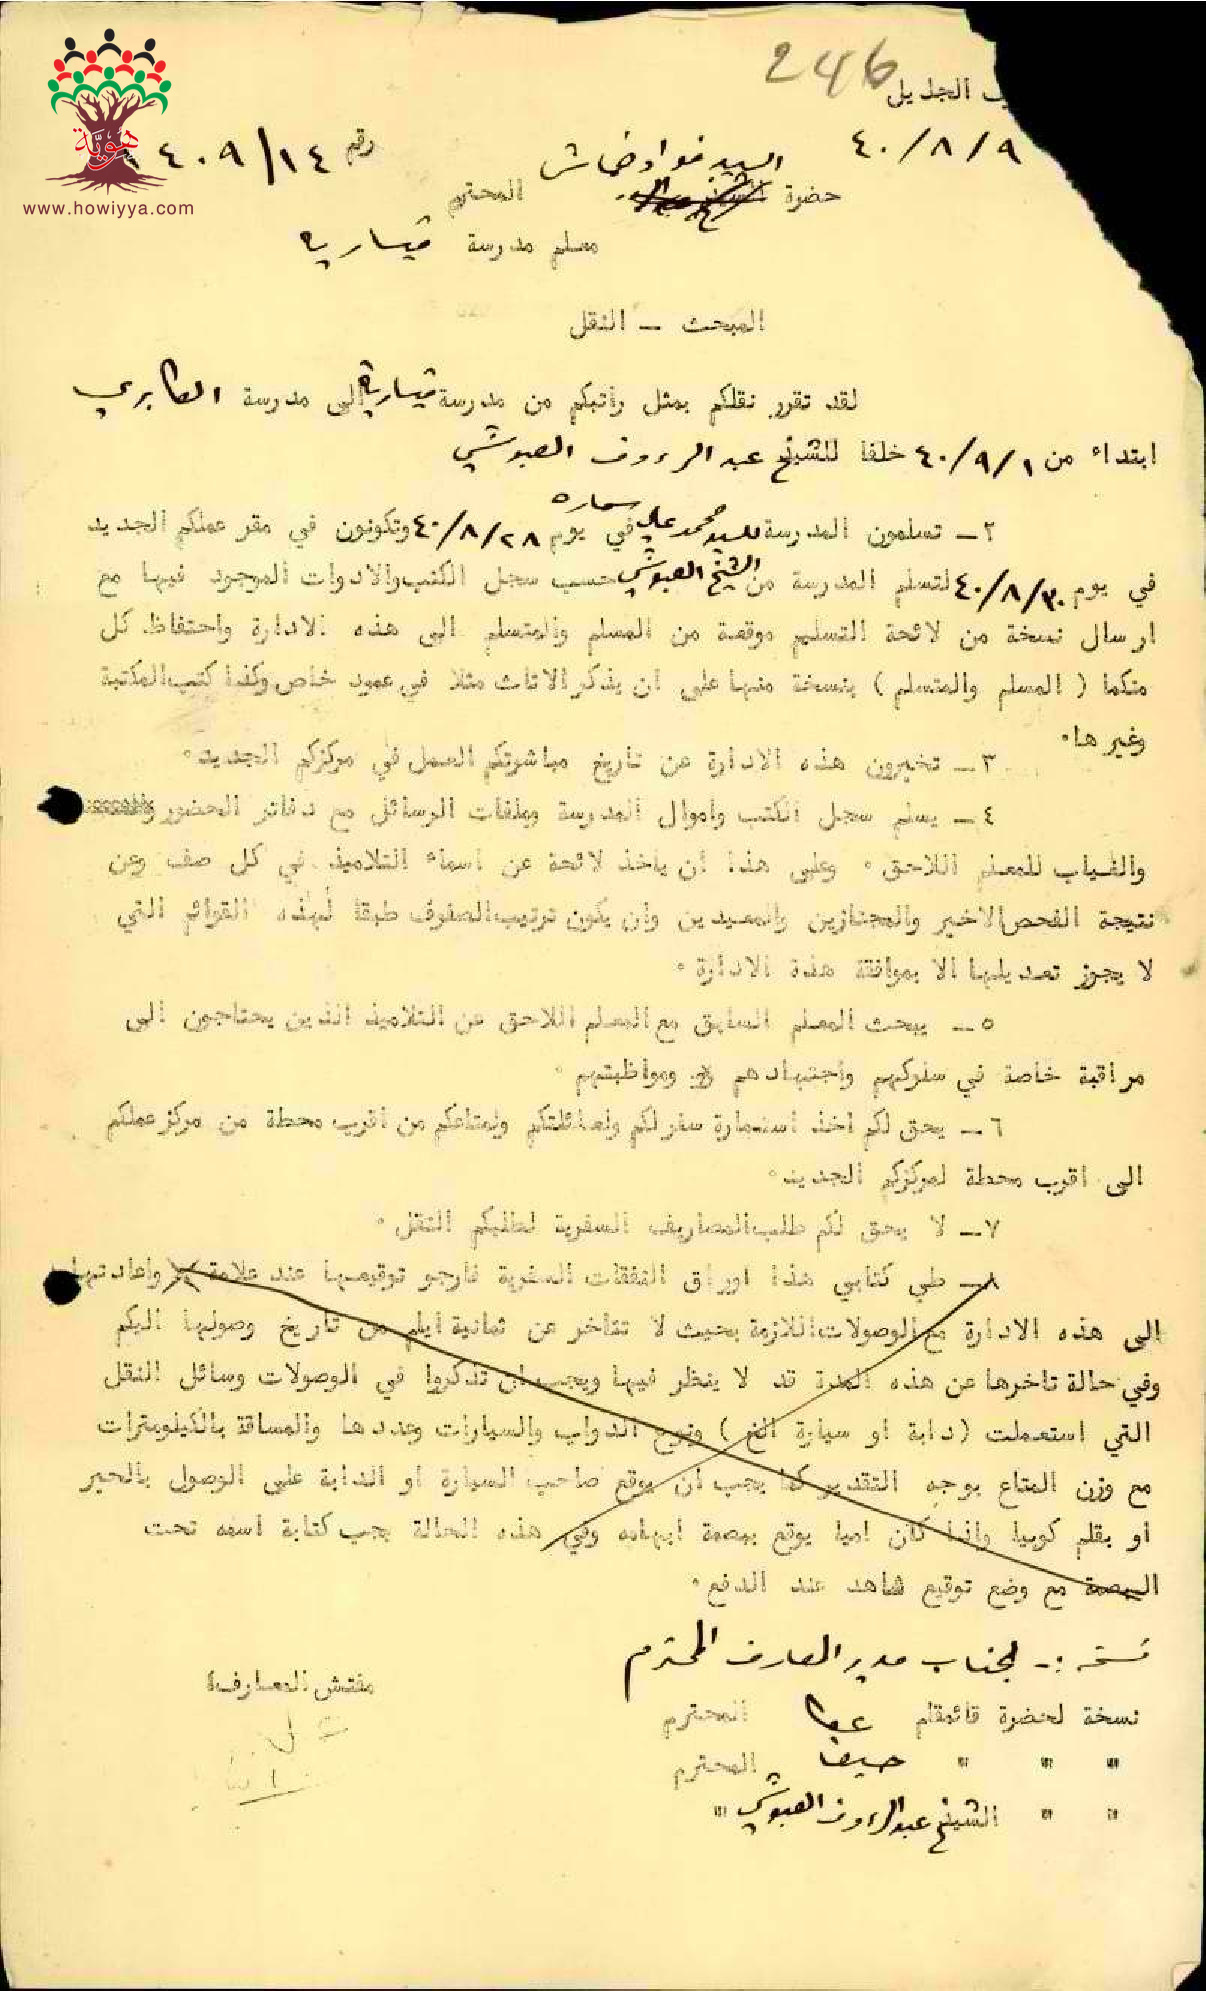 246
الجليل
٤٠/٨/٩
رقم ١٤/٤٠٩
هوية
www.howiyya.com
السيد فؤاد خماش
حضرة المحترم
معلم مدرسة قيسارية
المبحث ـ النقل
لقد تقرر نقلكم بمثل راتبكم من مدرسة قيسارية الى مدرسة الكابري
ابتداء من ٤٠/٩/١ خلفا للشيخ عبد الرءوف العبوشي
٢ـ تسلمون المدرسة للسيد محمد علي سماره في يوم ٤٠/٨/٢٨ وتكونون في مقر عملكم الجديد
في يوم ٤٠/٨/٣٠ لتسلم المدرسة من الشيخ العبوشي حسب سجل الكتب والادوات الموجود فيها مع
ارسال نسخة من لائحة التسليم موقعة من المسلم والمتسلم الى هذه الادارة واحتفاظ كل
منكما ( المسلم والمتسلم ) بنسخة منها على ان يذكر الاثاث مثلا في عمود خاص وكذا كتب المكتبة
وغيرها٠
٣ـ تخبرون هذه الادارة عن تاريخ مباشرتكم العمل في مركزكم الجديد٠
٤ـ يسلم سجل الكتب واموال المدرسة وملفات الرسائل مع دفاتر الحضور
والغياب للمعلم اللاحق ٠ وعلى هذا ان ياخذ لائحة عن اسماء التلاميذ في كل صف وعن
نتيجة الفحص الاخير والمجتازين والمعيدين وان يكون ترتيب الصفوف طبقا لهذه القوائم التي
لا يجوز تعديلها الا بموافقة هذه الادارة ٠
٥ـ يبحث المعلم السابق مع المعلم اللاحق عن التلاميذ الذين يحتاجون الى
مراقبة خاصة في سلوكهم واجتهادهم ومواظبتهم ٠
٦ـ يحق لكم اخذ استمارة سفر لكم ولعائلتكم ولمتاعكم من اقرب محطة من مركز عملكم
الى اقرب محطة لمركزكم الجديد٠
٧ـ لا يحق لكم طلب المصاريف السفرية لطلبكم النقل ٠
٨ـ طي كتابي هذا اوراق النفقات السفرية فارجو توقيعها عند علامة × واعادتها
الى هذه الادارة مع الوصولات اللازمة بحيث لا تتاخر عن ثمانية ايام من تاريخ وصولها اليكم
وفي حالة تاخرها عن هذه المدة قد لا ينظر فيها ويجب ان تذكروا في الوصولات وسائل النقل
التي استعملت (دابة او سيارة الخ ) ونوع الدواب والسيارات وعددها والمسافة بالكيلومترات
مع وزن المتاع بوجه التقدير كما يجب ان يوقع صاحب السيارة او الدابة على الوصول بالحبر
او بقلم كوبيا واذا كان اميا يوقع ببصمة ابهامه وفي هذه الحالة يجب كتابة اسمه تحت
البصمة مع وضع توقيع شاهد عند الدفع ٠
نسخة :ـ لجناب مدير المعارف المحترم
مفتش المعارف
نسخة لحضرة قائمقام عكا المحترم
" " " حيفا المحترم
" " الشيخ عبد الرءوف العبوشي "